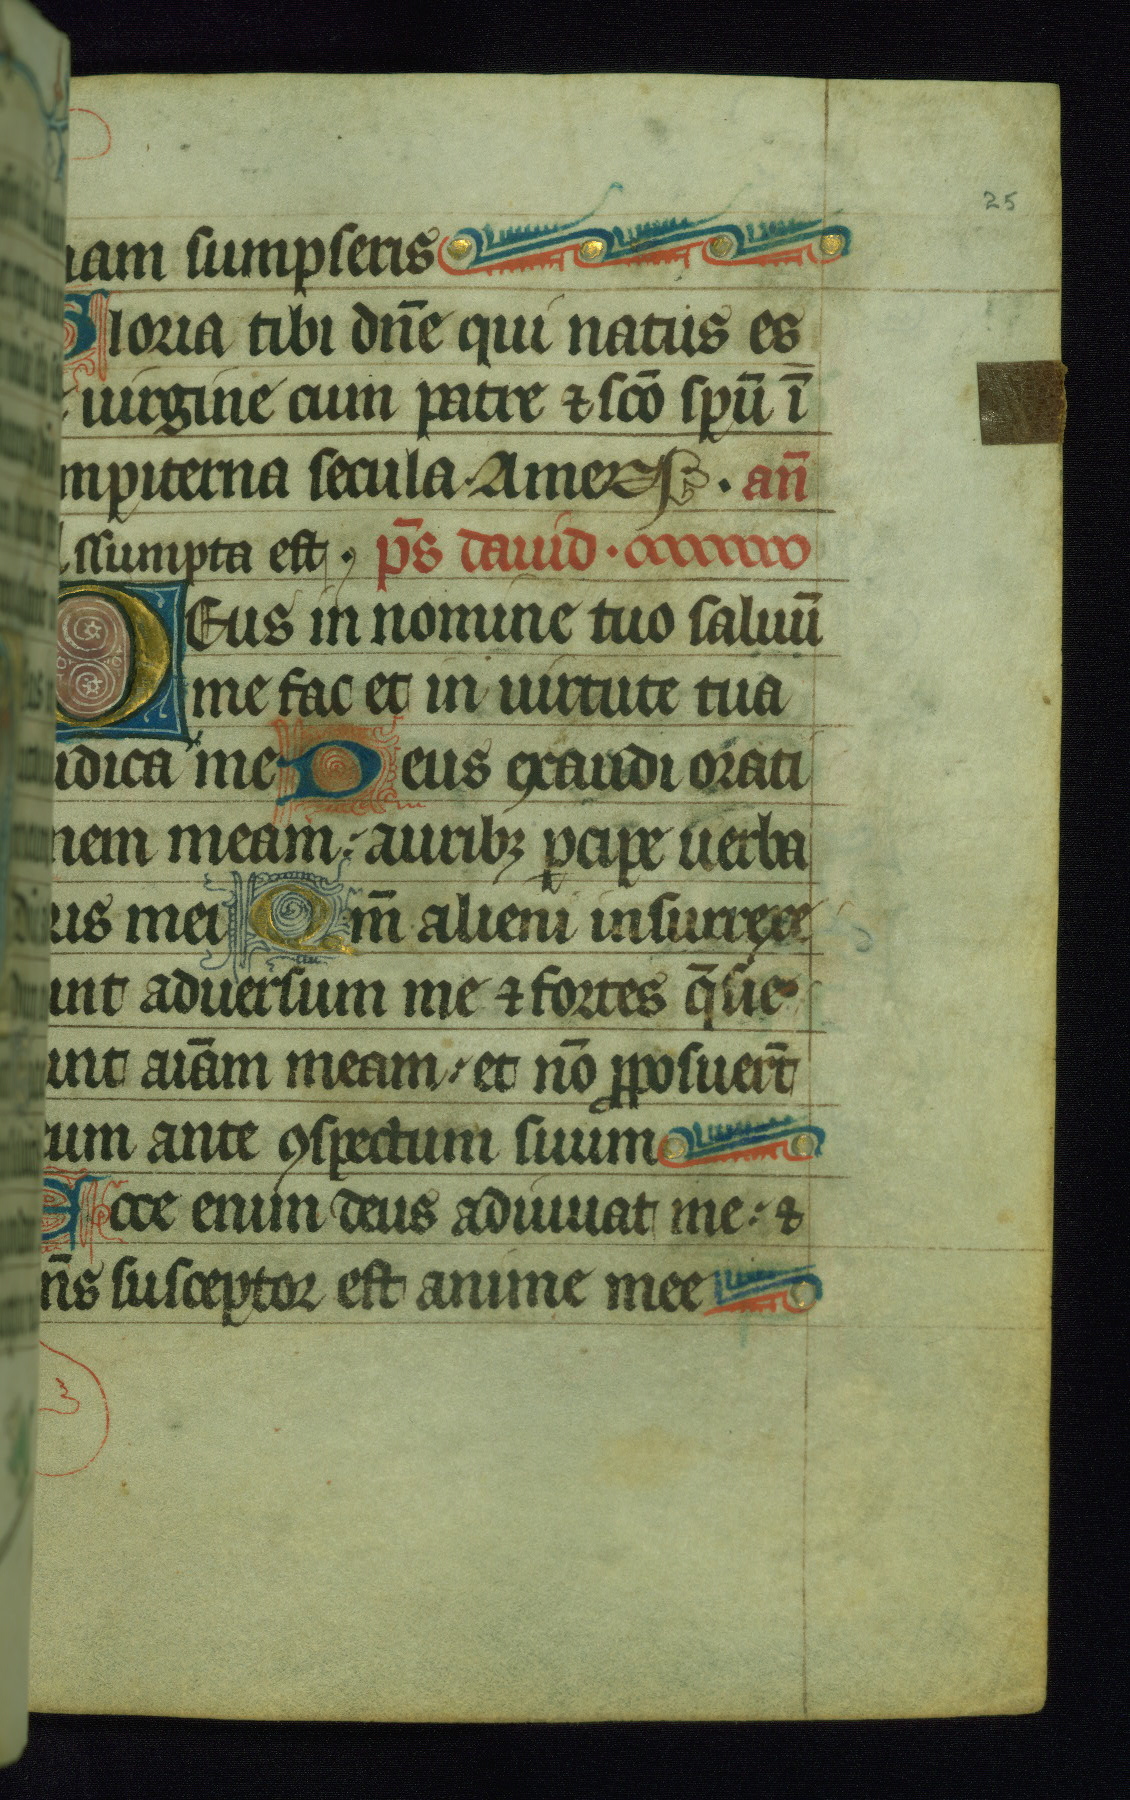 25
nam sumpseris
Gloria tibi dn̄e qui natus es
uirgine cum patre ⁊ sc̄o sp̄u ī
mpiterna secula. Amen. an̄
ssumpta est. p̄s dauid.
Deus in nomine tuo saluū
me fac et in uirtute tua
udica me Deus exaudi orati
nem meam: auribꝫ ꝑcipe uerba
ris mei Qm̄ alieni insurrexe
unt aduersum me ⁊ fortes q̄sie
unt aīam meam: et nō ꝓposuer̄t
eum ante ꝯspectum suum
Ecce enim deus adiuuat me: ⁊
n̄s susceptor est anime mee